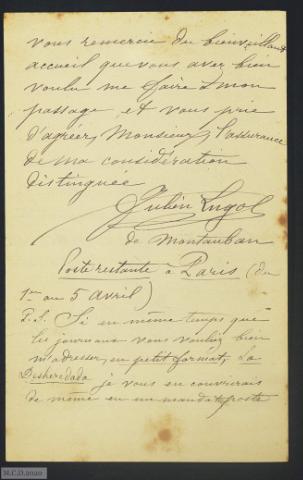 vous remercie du bienveillant
accueil que vous avez bien
voulu me faire à mon
passage, et vous prie
d'agréer, Monsieur, l'assurance
de ma considération
distinguée
Julien Lugol
de Montauban
Poste restante à Paris (du
1er au 5 avril)
P.S. Si en même temps que
les journaux vous vouliez bien
m'adresser, en petit format, La
Desheredada je vous en couvrirais
de même en un mandat-poste
M.C.D. 2020